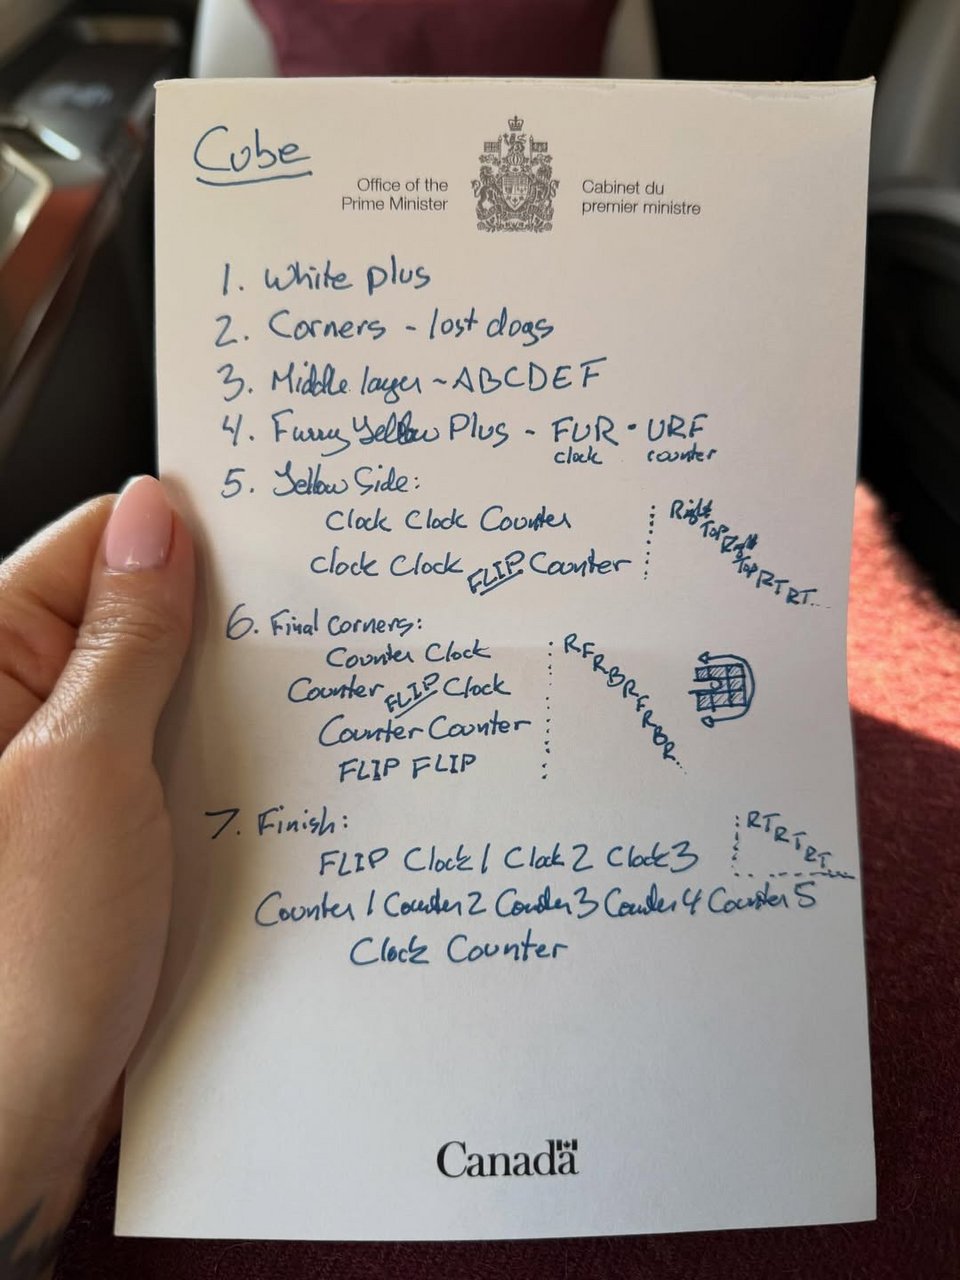 Cube
Office of the
Prime Minister
Cabinet du
premier ministre
1. White plus
2. Corners - lost dogs
3. Middle layer - ABCDEF
4. Furry Yellow Plus - FUR · URF
clock counter
5. Yellow Side:
Clock Clock Counter
Clock Clock FLIP Counter
Right Top Right Top RT RT...
6. Final Corners:
Counter Clock
Counter FLIP Clock
Counter Counter
FLIP FLIP
RFRBRFRBR...
7. Finish:
FLIP Clock 1 Clock 2 Clock 3
Counter 1 Counter 2 Counter 3 Counter 4 Counter 5
Clock Counter
RT RT RT...
Canada